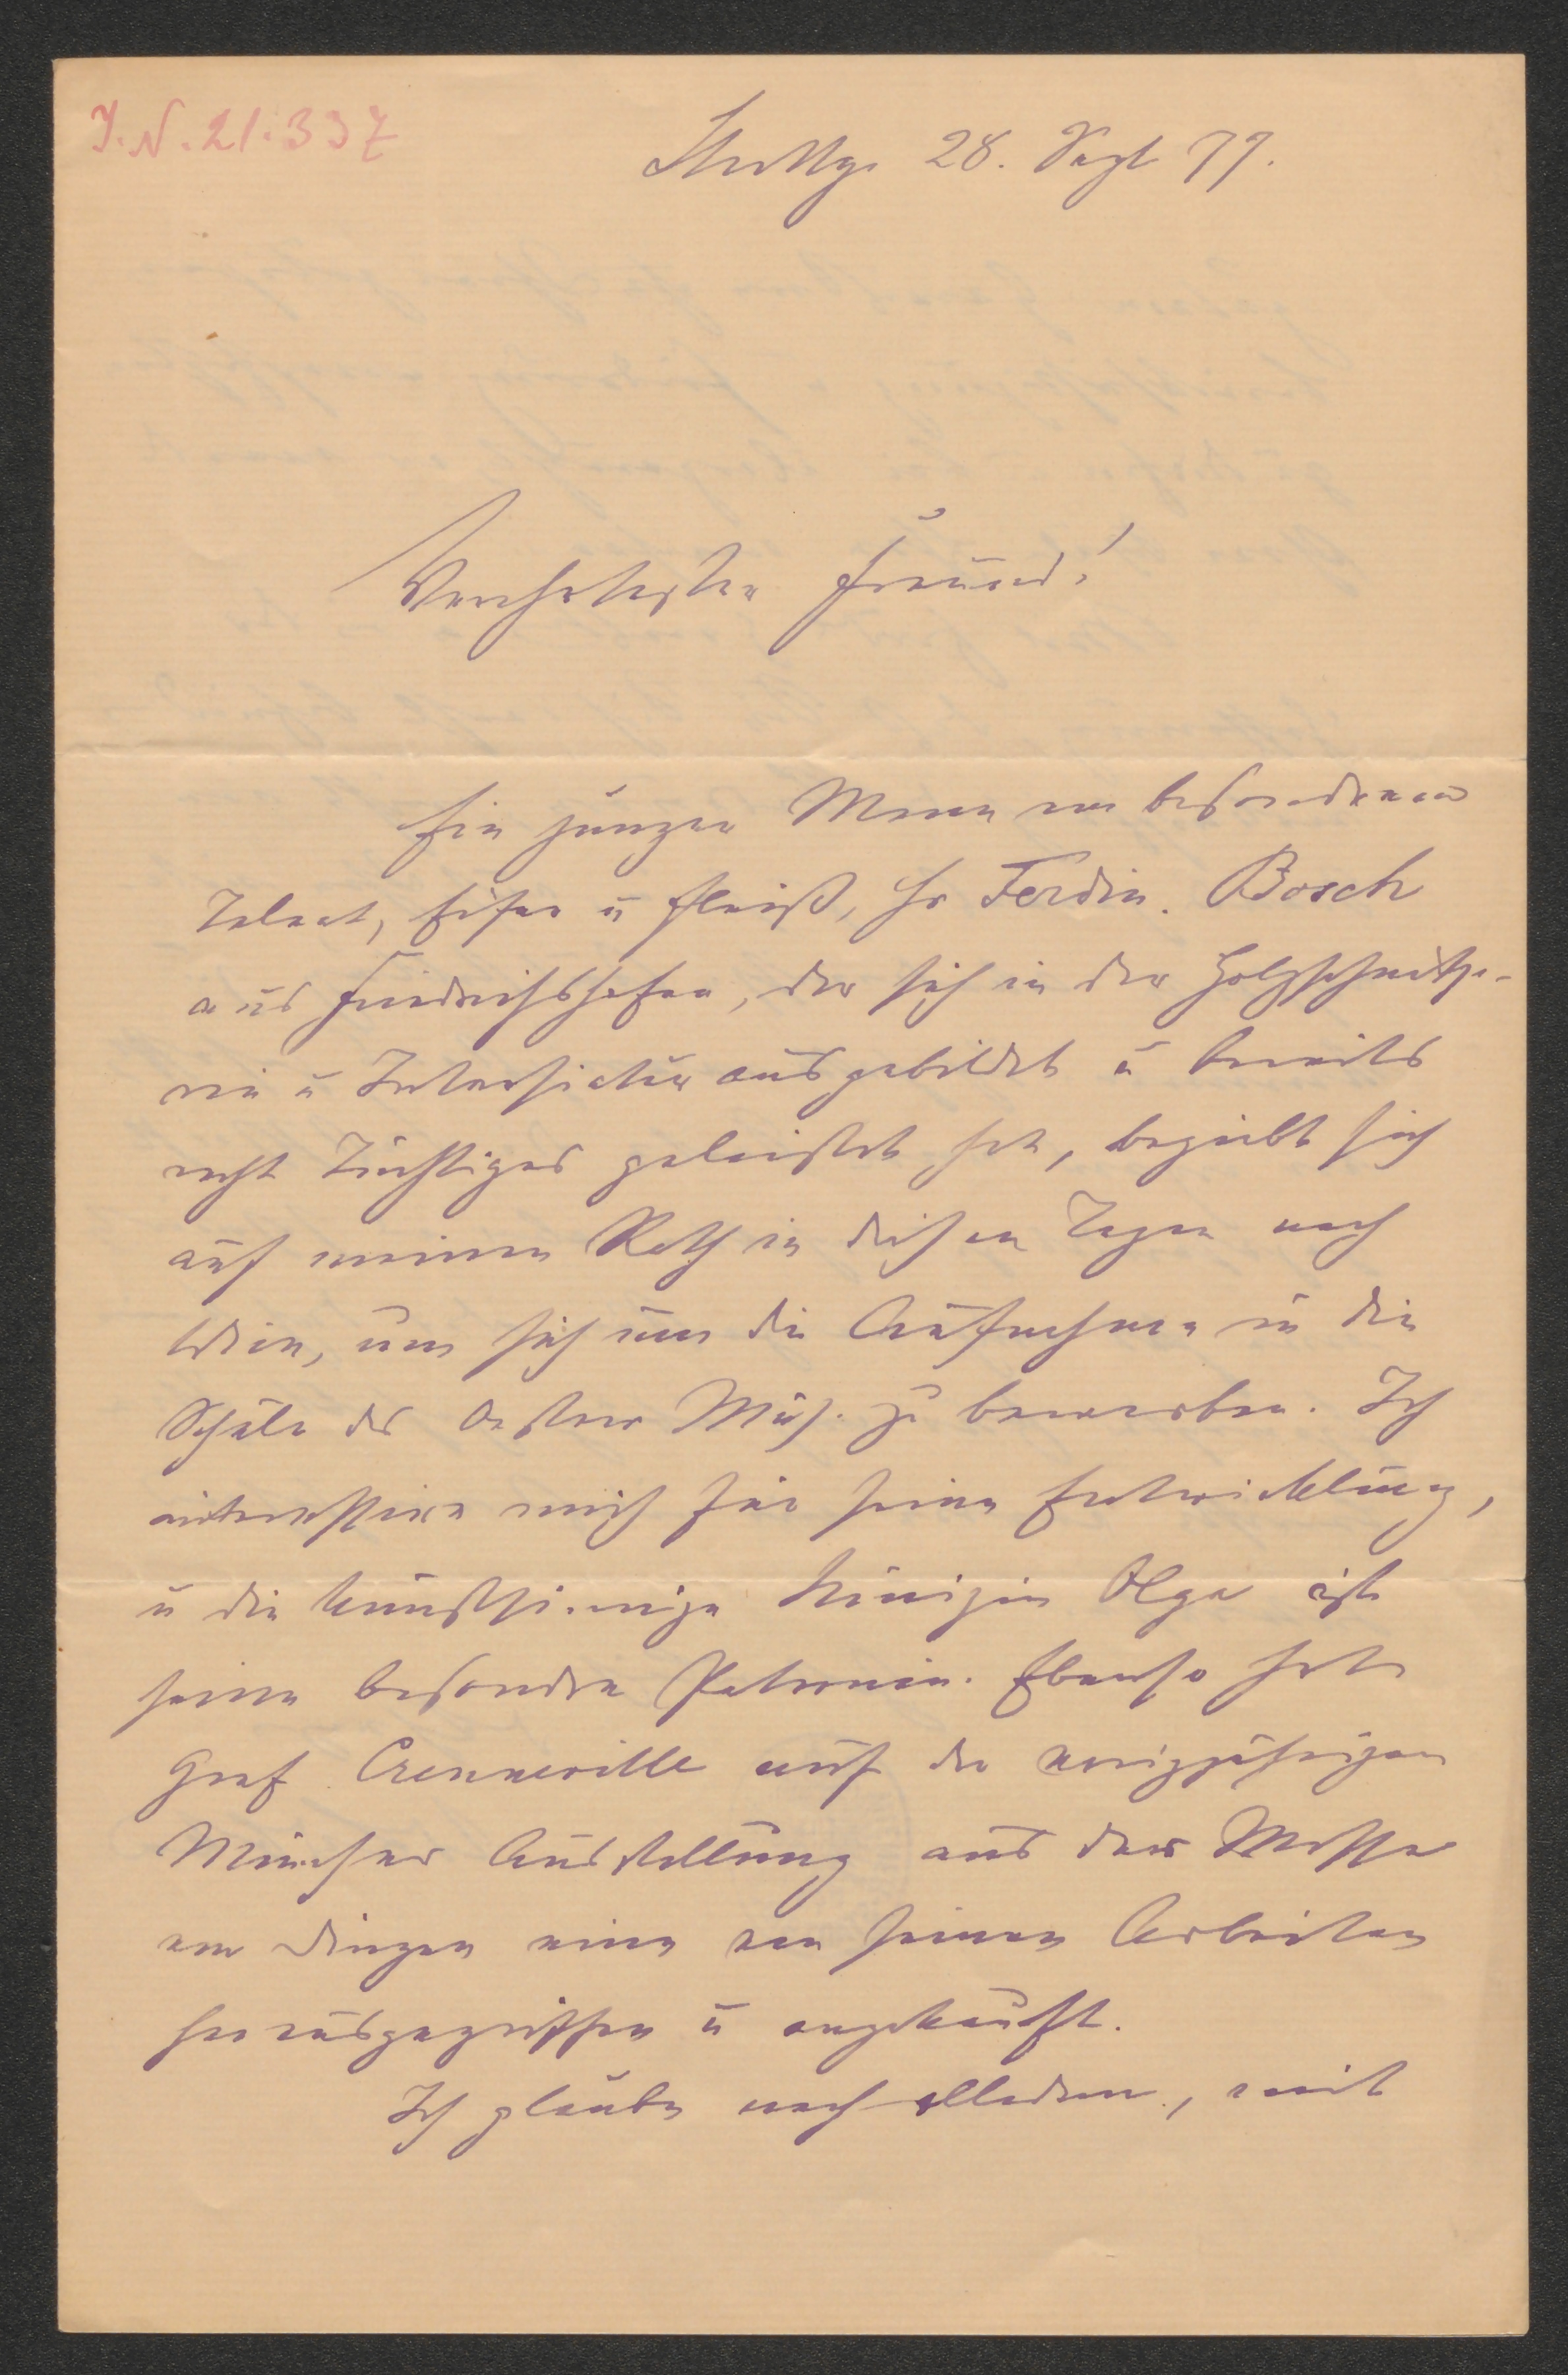 I.N. 21.337
Stuttg. 28. Sept 77.
Verehrtester Freund!
Ein junger Mann von besonderem
Talent, Eifer u Fleiß, Hr Ferdin. Bosch
aus Friedrichshafen, der sich in der Holzschnitze-
rei u Intarsiatur ausgebildet u bereits
recht Tüchtiges geleistet hat, begiebt sich
auf meinen Rath in diesen Tagen nach
Wien, um sich um die Aufnahme in die
Schule des Oesterr Mus. zu bewerben. Ich
interessire mich für seine Entwicklung,
u die kunstsinnige Königin Olga ist
seine besondre Patronin. Ebenso hat
Graf Crenneville auf der vorigjährigen
Münchner Ausstellung aus der Masse
von Dingen eine von seinen Arbeiten
herausgegriffen u angekauft.
Ich glaube nach alledem, mit